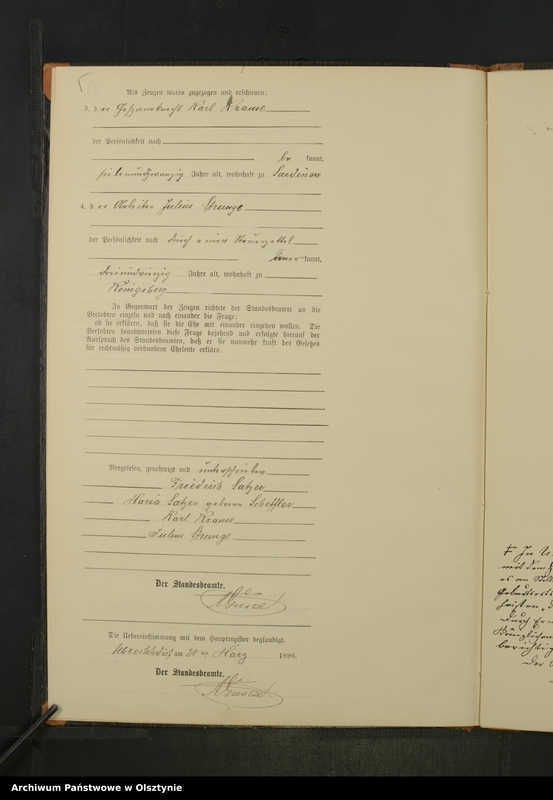 Als Zeugen waren zugezogen und erschienen:
3. der Gespannknecht Karl Krause
der Persönlichkeit nach
be kannt,
siebenundzwanzig Jahre alt, wohnhaft zu Sardienen
4. der Arbeiter Julius Strunge
der Persönlichkeit nach durch einen Steuerzettel
aner kannt,
dreiundvierzig Jahre alt, wohnhaft zu
Königsberg
In Gegenwart der Zeugen richtete der Standesbeamte an die
Verlobten einzeln und nach einander die Frage:
ob sie erklären, daß sie die Ehe mit einander eingehen wollen. Die
Verlobten beantworteten diese Frage bejahend und erfolgte hierauf der
Ausspruch des Standesbeamten, daß er sie nunmehr kraft des Gesetzes
für rechtmäßig verbundene Eheleute erkläre.
Vorgelesen, genehmigt und unterschrieben
Friedrich Satzer
Maria Satzer geborene Scheffler
Karl Krause
Julius Strunge
Der Standesbeamte.
Die Uebereinstimmung mit dem Hauptregister beglaubigt.
am 20 ten März 1896.
Der Standesbeamte.
mit dem
es an
durch
der
Archiwum Państwowe w Olsztynie